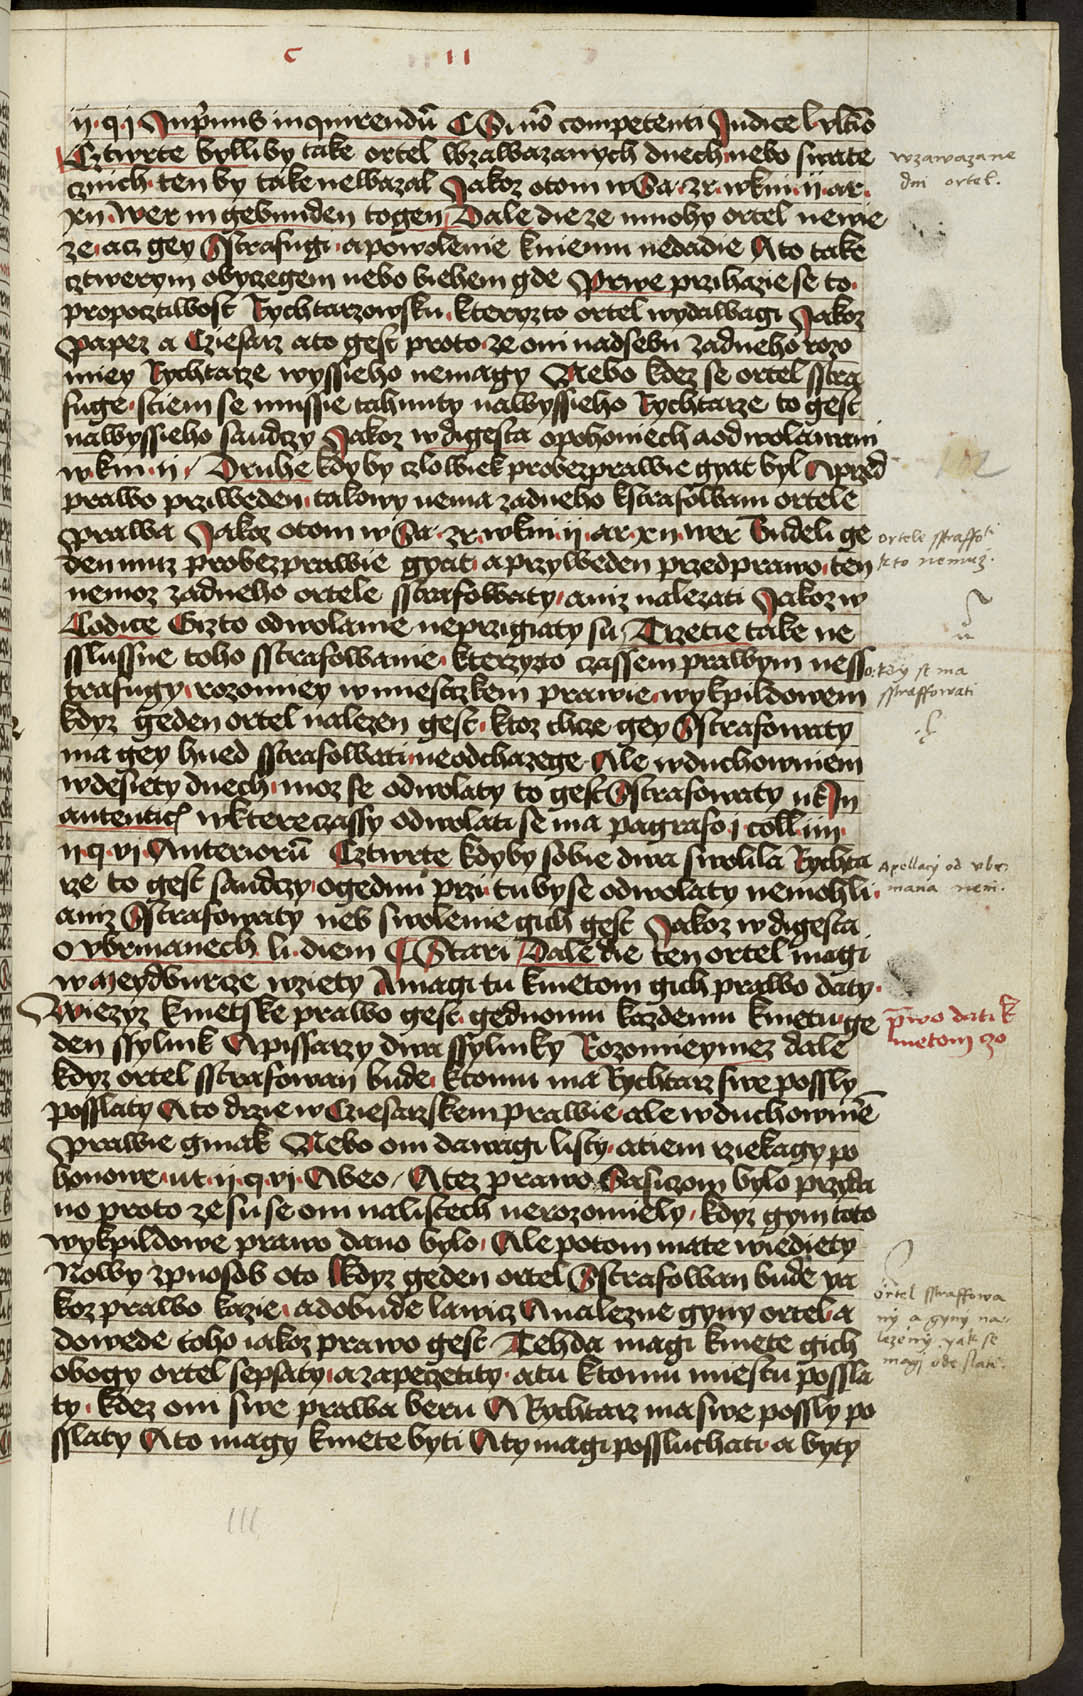 C II
ij · q · j Inprimis inquirendu͂ C Si no͂ competenti Iudice l vltio
Cztwrte bylliby take ortel wzawazanych dnech nebo swate
cznich · ten by take newazal Jakoz otom w Sa · zr · wkni · ij · ar ·
xij · wer in gebunden togen Dale die ze mnohy ortel newie
ze · acz gey Sstrafugi · apowolenie kniemu nedadie Ato take
cztwerym obyczegem nebo biehem gde Prwe przihazie se to ·
propocztiwost Rychtarzowsku · kteryzto ortel wydawagi Jakoz
Papez a Cziesarz ato gest proto · ze oni nadsebu zadneho rozo
miey Rychtarze wyssieho nemagy Nebo kdez se ortel sstra
fuge · stiem se mussie tahnuty nawyssieho Rychtarze to gest
nawyssieho saudczy Jakoz w digesta opohoniech aodwolawani
wkni · ij · Druhe kdyby czlowiek probezprawie gyat byl Aprzed
prawo prziweden · takowy nema zadneho sstrafowani ortele
Prawa Jakoz otom w Sa · zr · wkni · ij · ar · xij · wer Budeli ge
den muz probezprawie gyat · aprzyweden przed prawo · ten
nemoz zadneho ortele sstrafowaty · aniz nalezati Jakoz w
Codice Gizto odwolanie neprzigiaty su Trzetie take ne
sslussne toho sstrafowanie · kterzyzto czassem prawym ness
trafugy · rozomiey wmiestczkem prawie · wykpildowem
kdyz geden ortel nalezen gest · ktoz chcze gey Sstrafowaty
ma gey hned sstrafowati · neodchazege · Ale wduchowniem
wdesiety dnech · moz se odwolaty to gest Sstrafowaty ut In
autentic wktere czassy odwolati se ma pagrafo j coll · iiij ·
ij q · vj · Anterioru͂ Cztwrte kdyby sobie dwa swolila Rychta
rze to gest saudczy · ogednu przi · tu by se odwolaty nemohli ·
aniz Sstrafowaty neb swolenie gich gest Jakoz w digesta
o vbrmanech · li · diem C Stari Dale die ten ortel magi
w Meydburcze wziety Amagi tu kmetom gich prawo daty ·
Wiezyz kmetske prawo gest · gednomu kazdemu kmetu · ge
den ssylink Apissarzy dwa ssylinky Rozomieymez dale
kdyz ortel sstrafowan bude · ktomu ma Rychtarz swe possly
posslaty Ato drzie w Cziesarskem prawie · ale wduchownie͂
Prawie ginak Nebo oni dawagi listy · atiem rziekagy po
honowe · ut · ij · q · vj · Abeo · Atez prawo Sasiczom bylo przyda
no proto ze su se oni nalistech nerozomiely · kdyz gym toto
wykpildowe prawo dano bylo · Ale potom mate wiediety
Nowy zpuosob oto kdyz geden ortel Sstrafowan bude ya
koz prawo kazie · adobude lawicz Analezne gyny ortel · a
dowede toho iakoz prawo gest · Tehda magi kmete gich
obogy ortel sepsaty · azapeczetity · atu ktomu miestu possla
ty · kdez oni swe prawa beru A Rychtarz ma swe possly po
sslaty Ato magy kmete byti Aty magi possluchati · a byty
wzawazane
dni ortel.
ortele sstraffoti
kto nemuz.
kdy se ma
sstraffowati
Apellacy od vbr
mana neni.
p̄wo dati k
metom 30
Ortel sstraffowa
ny a gyny na
lezeny yak se
magj ode slati.
111